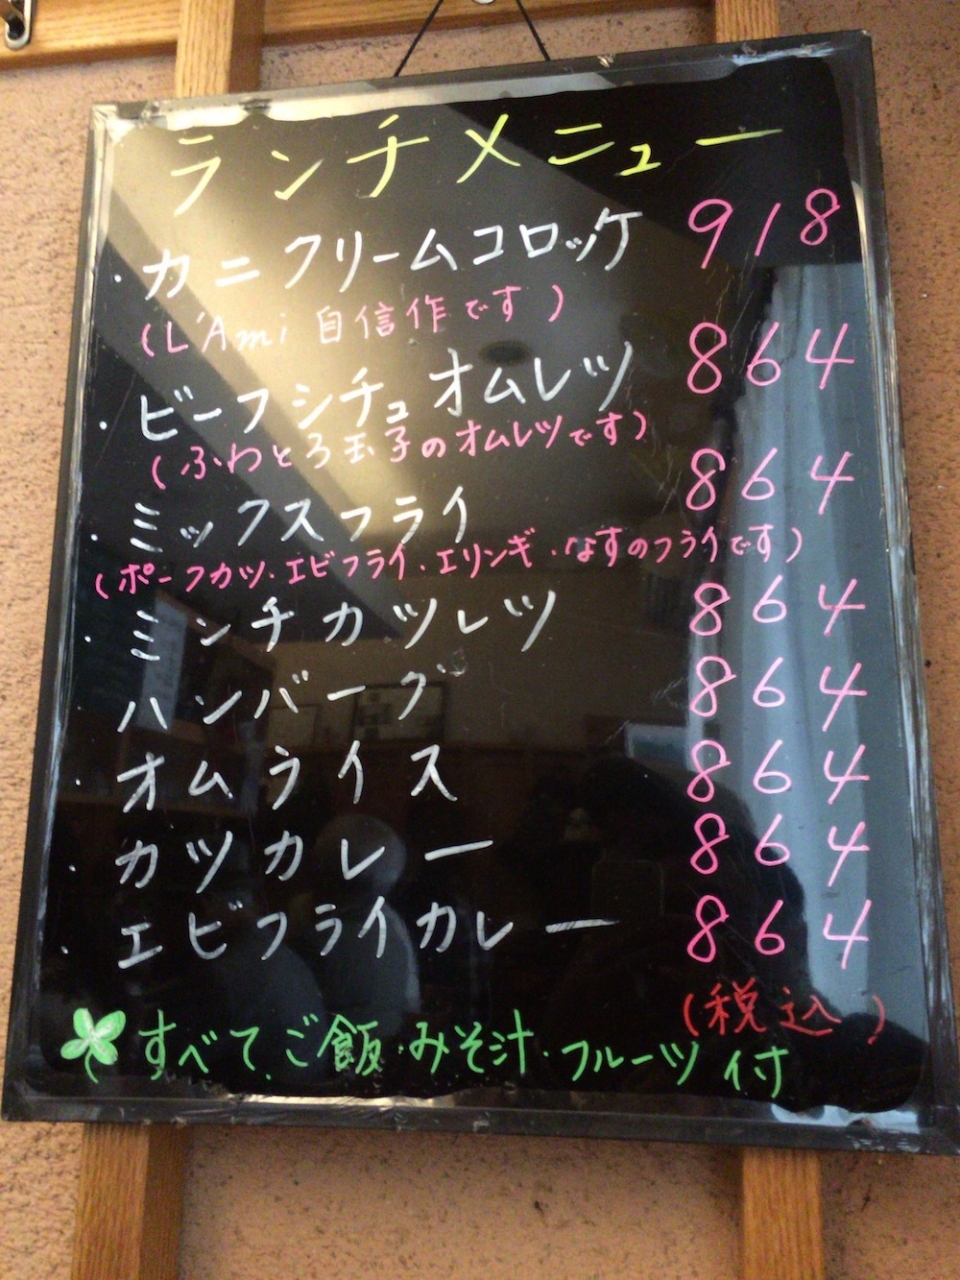 ランチメニュー
・カニクリームコロッケ 918
(L'Ami 自信作です)
・ビーフシチュオムレツ 864
(ふわとろ玉子のオムレツです)
・ミックスフライ 864
(ポークカツ・エビフライ・エリンギ・なすのフライです)
・ミンチカツレツ 864
・ハンバーグ 864
・オムライス 864
・カツカレー 864
・エビフライカレー 864
(税込)
すべて、ご飯・みそ汁・フルーツ付